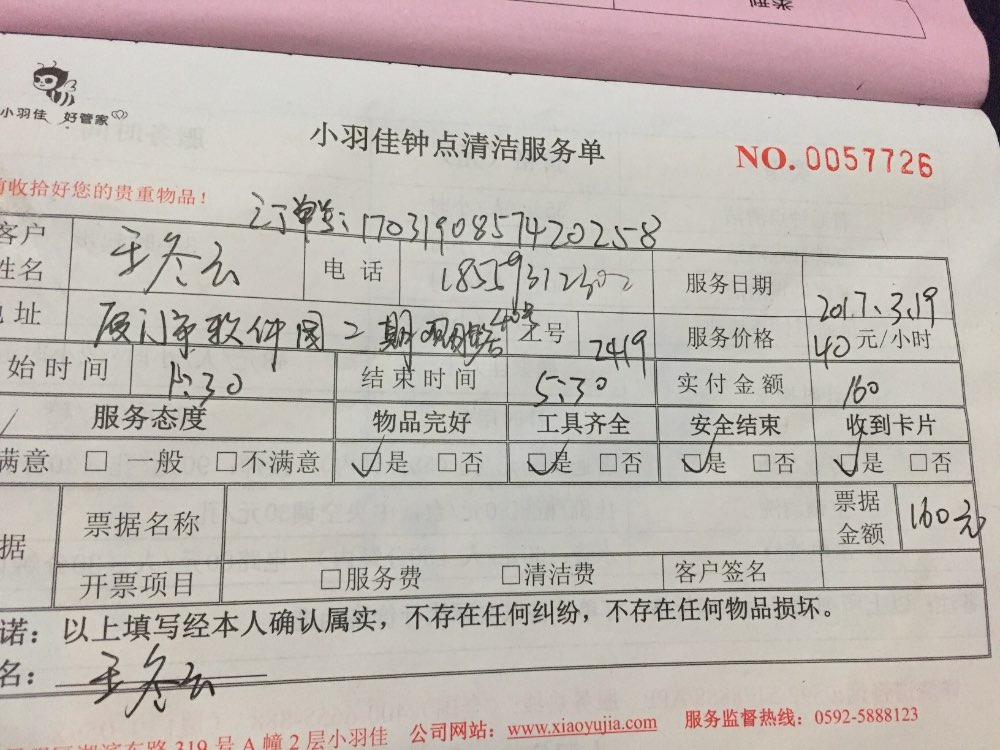 类型
小羽佳 好管家
小羽佳钟点清洁服务单
NO. 0057726
前收拾好您的贵重物品！
订单号：1703190857420258
客户姓名 王冬云 电话 18559312302 服务日期 2017.3.19
地址 厦门市软件园二期观日路 号 2419 服务价格 40元/小时
始时间 1:30 结束时间 5:30 实付金额 160
服务态度 物品完好 工具齐全 安全结束 收到卡片
满意 □一般 □不满意 ☑是 □否 ☑是 □否 ☑是 □否 ☑是 □否
据 票据名称 票据金额 160元
开票项目 □服务费 □清洁费 客户签名
诺：以上填写经本人确认属实，不存在任何纠纷，不存在任何物品损坏。
名：王冬云
湖滨东路319号A幢2层小羽佳 公司网站：www.xiaoyujia.com 服务监督热线：0592-5888123